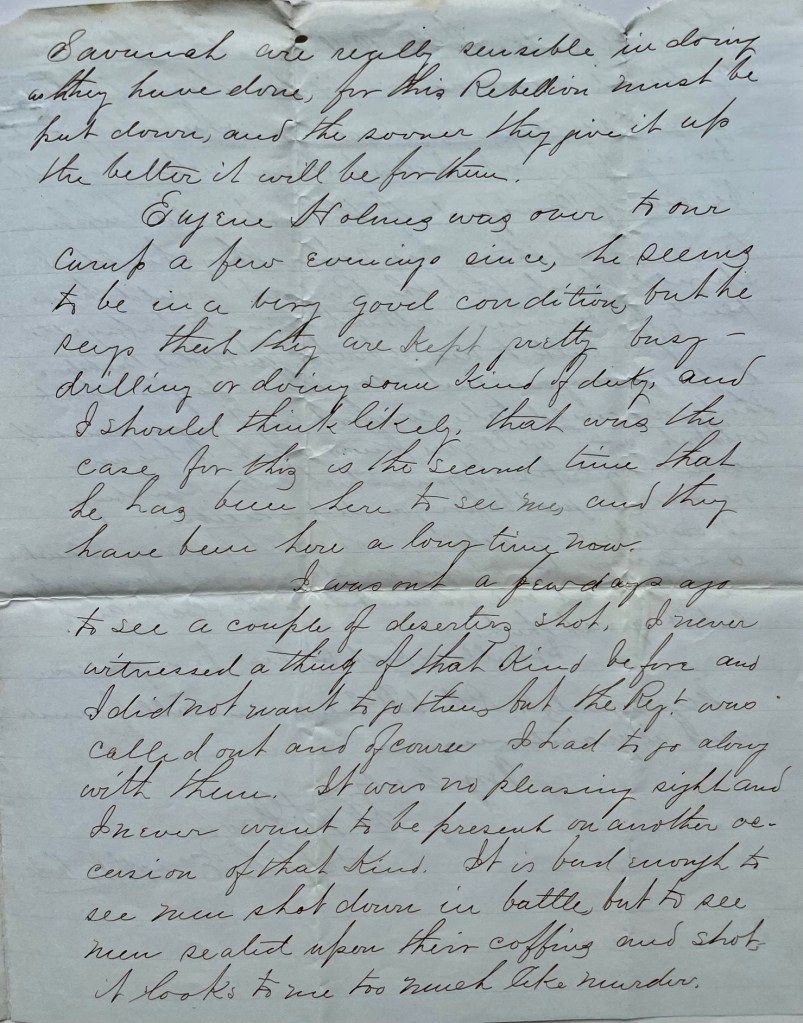 Savannah are really sensible in doing
as they have done, for this Rebellion must be
put down, and the sooner they give it up
the better it will be for them.
Eugene Holmes was over to our
camp a few evenings since, he seems
to be in a very good condition, but he
says that they are kept pretty busy -
drilling or doing some kind of duty, and
I should think likely, that was the
case for this is the second time that
he has been here to see me, and they
have been here a long time now.
I was out a few days ago
to see a couple of deserters shot. I never
witnessed a thing of that kind before and
I did not want to go then, but the Regt. was
called out and of course I had to go along
with them. It was no pleasing sight and
I never want to be present on another oc-
casion of that kind. It is bad enough to
see men shot down in battle, but to see
men seated upon their coffins and shot,
it looks to me too much like murder.